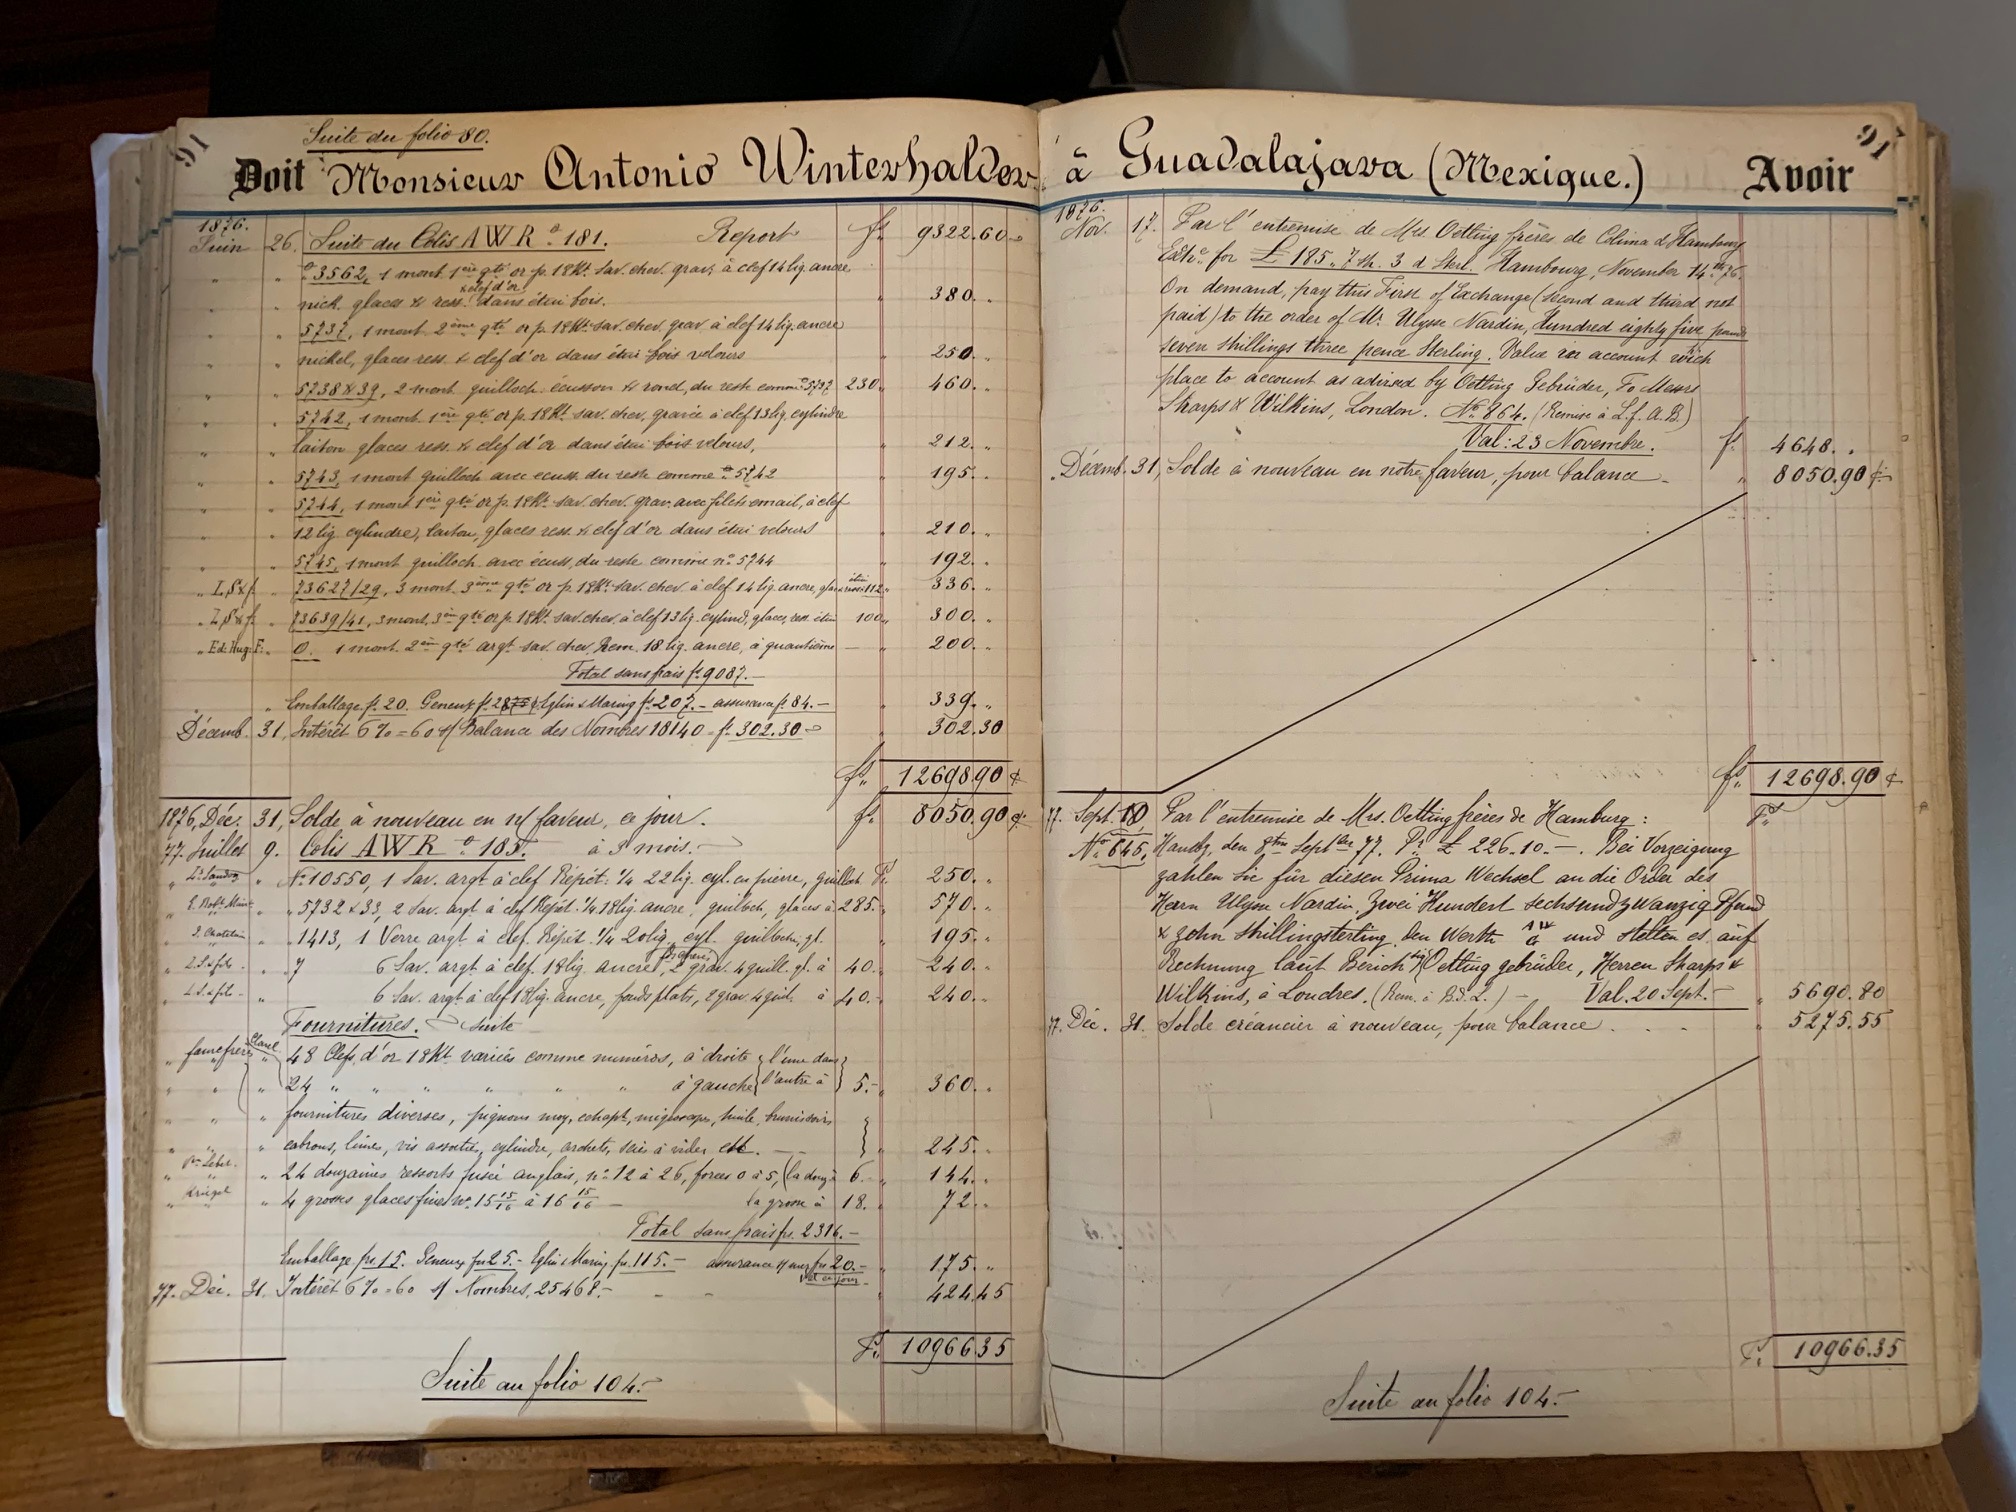 91
Suite du folio 80.
Doit Monsieur Antonio Winterhalder
1876.
Juin 26. Suite du Colis AWR º 181. Report fs. 9322.60
" " º 3562, 1 mont. 1ère qté or p. 18Kt. sav. chev. grav. à clef 14 lig. ancre
" " nick. glaces & ress. & clef d'or dans étui bois. " 380. "
" " 5737, 1 mont 2ème qté or p. 18Kt. sav. chev. grav à clef 14 lig. ancre
" " nickel, glaces ress. & clef d'or dans étui bois velours " 250. "
" " 5738 & 39, 2 mont guilloch. écusson & rond, du reste comme º 5737 230 " 460. "
" " 5742, 1 mont. 1ère qté or p. 18Kt sav. chev. gravée à clef 13 lig. cylindre
" " laiton glaces ress. & clef d'or dans étui bois velours, " 212. "
" " 5743, 1 mont guilloch avec écuss. du reste comme º 5742 " 195. "
" " 5744, 1 mont 1ère qté or p. 18Kt sav. chev. grav. avec filets email, à clef
" " 12 lig cylindre, laiton, glaces ress. & clef d'or dans étui velours " 210. "
" " 5745, 1 mont guilloch avec écuss, du reste comme nº 5744 " 192. "
" L.S&f. " 73627/29, 3 mont. 3ème qté or p. 18Kt. sav. chev. à clef 14 lig. ancre, étui 112 " 336. "
" L.S&f. " 73639/41, 3 mont. 3ème qté or p. 18Kt. sav. chev. à clef 13 lig. cylind, glaces, ress. étui 100 " 300. "
" Ed. Aug. F. " 0. 1 mont. 2ème qté argt sav. chev. Rem. 18 lig. ancre, à quantième — " 200. "
Total sans frais fs. 9087.—
" " Emballage f. 20. Geneux f. 28 Eglin & Maring f. 207.— assurance f. 84.— " 339. "
Décemb. 31, Intérêt 6% = 60 s/ Balance des Nombres 18140 = f. 302.30 " 302.30
fs. 12698.90
1876, Déc. 31, Solde à nouveau en n/ faveur, ce jour. fs. 8050.90
77. Juillet 9. Colis AWR º 185. à 3 mois.
" Ls. Sandoz " Nº 10550, 1 Sav. argt à clef Répét. ¼ 22 lig. cyl. en pierre, guilloch. F. 250. "
" " 5732 & 33, 2 Sav. argt à clef Répét. ¼ 18 lig. ancre, guilloch, glaces à 285.— 570. "
" " 1413, 1 Verre argt à clef. Répét. ¼ 20 lig. cyl. guilloché, gl. " 195. "
" L.S. & fils " 7 6 Sav. argt. à clef. 18 lig. ancre, 2 grav. 4 guill. gl. à 40. " 240. "
" L.S. & fils " 6 Sav. argt à clef 18 lig. ancre, fonds plats, 2 grav 4 guil. à 40.— 240. "
Fournitures. suite
" Favre frères " 48 Clefs d'or 18Kt. variées comme numéros, à droite l'une dans
" " " 24 " " " " " " à gauche l'autre à 5.— 360. "
" " " fournitures diverses, pignons moy, echapt, huile, brunissoirs
" " " cabrons, limes, vis assorties, cylindre, archets, scies à vider etc. — " 245. "
" " " 24 douzaines ressorts fusée anglais, nº 12 à 26, forces 0 à 5, (la douz. à 6.— 144. "
" " " 4 grosses glaces fines Nº. 15 15/16 à 16 15/16 — la grosse à 18. " 72. "
Total sans frais fs. 2316.—
Emballage fs. 15. Geneux fs 25.— Eglin & Maring fs. 115.— assurance s/ mer fs 20.— " 175. "
77. Déc. 31. Intérêt 6% = 60 s/ Nombres, 25468.— " 424.45
F. 10966.35
Suite au folio 104.—
à Guadalajara (Mexique.) Avoir
91
1876.
Nov. 17. Par l'entremise de Mrs. Oetting frères de Colima & Hamburg
Exche. for £ 185 " 7 sh. 3 d Sterl. Hambourg, November 14th 76.
On demand, pay this First of Exchange (second and third not
paid) to the order of Mr. Ulysse Nardin, Hundred eighty five pounds
seven shillings three pence Sterling. Value in account wich
place to account as advised by Oetting Gebrüder, To Messrs
Sharps & Wilkins, London. Nº 864. (Remise à L.f. A.B)
Val: 23 Novembre. fs. 4648. "
" Décemb. 31, Solde à nouveau en notre faveur, pour balance — " 8050.90
fs. 12698.90
77. Sept. 10 Par l'entremise de Mrs. Oetting frères de Hamburg: F.
Nº 645, Hambg, den 8ten September 77. Pr £ 226-10.—. Bei Vorzeigung
zahlen Sie für diesen Prima Wechsel an die Order des
Herrn Ulysse Nardin, Zwei Hundert sechsundzwanzig Pfund
& zehn Shillingsterling. Den Werth und stellen es auf
Rechnung laut Bericht Oetting gebrüder, Herren Sharps &
Wilkins, à Londres. (Rem. à B.d.L.) — Val. 20 Sept.— " 5690.80
77. Déc. 31. Solde créancier à nouveau, pour balance . . . " 5275.55
F. 10966.35
Suite au folio 104.—